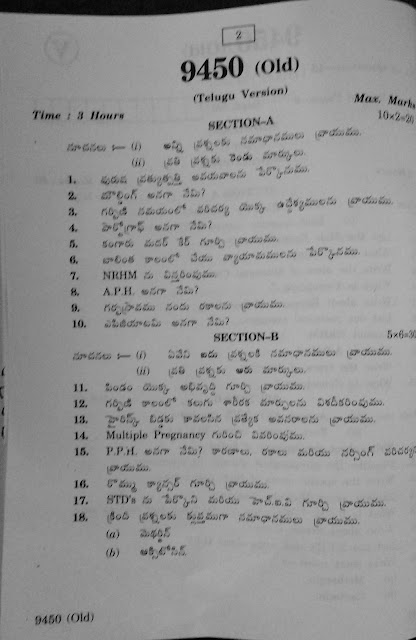 2
9450 (Old)
(Telugu Version)
Max. Marks
Time : 3 Hours
SECTION–A
10×2=20
సూచనలు :— (i) అన్ని ప్రశ్నలకు సమాధానములు వ్రాయుము.
(ii) ప్రతి ప్రశ్నకు రెండు మార్కులు.
1. పురుష ప్రత్యుత్పత్తి అవయవాలను పేర్కొనుము.
2. మౌల్డింగ్ అనగా నేమి?
3. గర్భిణి సమయంలో పరిచర్య యొక్క ఉద్దేశ్యములను వ్రాయుము.
4. అనగా నేమి?
5. కంగారు మదర్ కేర్ గూర్చి వ్రాయుము.
6. బాలింత కాలంలో చేయు వ్యాయామములను పేర్కొనుము.
7. NRHM ను విస్తరింపుము.
8. A.P.H. అనగా నేమి?
9. గర్భస్రావము నందు రకాలను వ్రాయుము.
10. ఎపిజియాటమి అనగా నేమి?
SECTION–B
5×6=30
సూచనలు :— (i) ఏవేని ఐదు ప్రశ్నలకి సమాధానములు వ్రాయుము.
(ii) ప్రతి ప్రశ్నకు ఆరు మార్కులు.
11. పిండం యొక్క అభివృద్ధి గూర్చి వ్రాయుము.
12. గర్భిణి కాలంలో కలుగు శారీరక మార్పులను విశదీకరింపుము.
13. హైరిస్క్ బిడ్డకు కావలసిన ప్రత్యేక అవసరాలను వ్రాయుము.
14. Multiple Pregnancy గురించి వివరింపుము.
15. P.P.H. అనగా నేమి? కారణాలు, రకాలు మరియు నర్సింగ్ పరిచర్య
వ్రాయుము.
16. రొమ్ము క్యాన్సర్ గూర్చి వ్రాయుము.
17. STD's ను పేర్కొని మరియు హెచ్.ఐ.వి గూర్చి వ్రాయుము.
18. క్రింది ప్రశ్నలకు క్లుప్తముగా సమాధానములు వ్రాయుము.
(a) మెథర్జిన్
(b) ఆక్సిటోసిన్
9450 (Old)